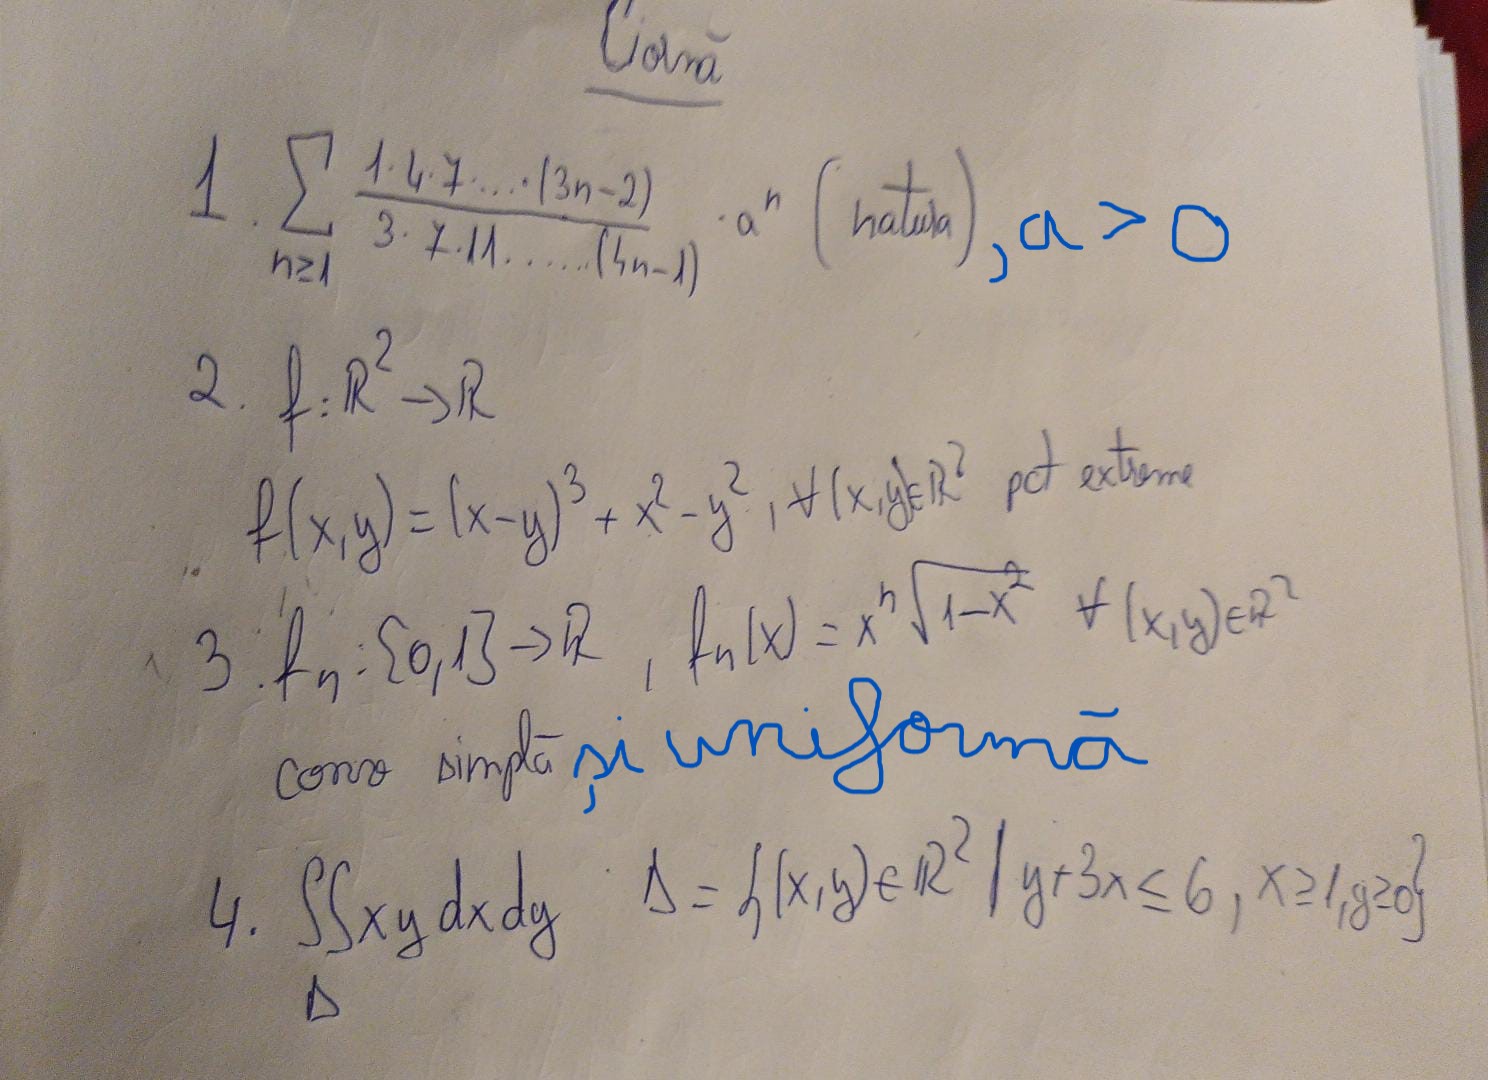 1. ∑ n≥1 1·4·7·....·(3n-2) / 3·7·11.......(4n-1) · aⁿ (natura), a > 0
2. f: ℝ² → ℝ
f(x,y) = (x-y)³ + x² - y², ∀(x,y)∈ℝ² pct extreme
3. fₙ: {0,1} → ℝ, fₙ(x) = xⁿ√(1-x²) ∀(x,y)∈ℝ²
conv simplă și uniformă
4. ∬_Δ xy dx dy Δ = {(x,y)∈ℝ² | y+3x ≤ 6, x≥1, y≥0}